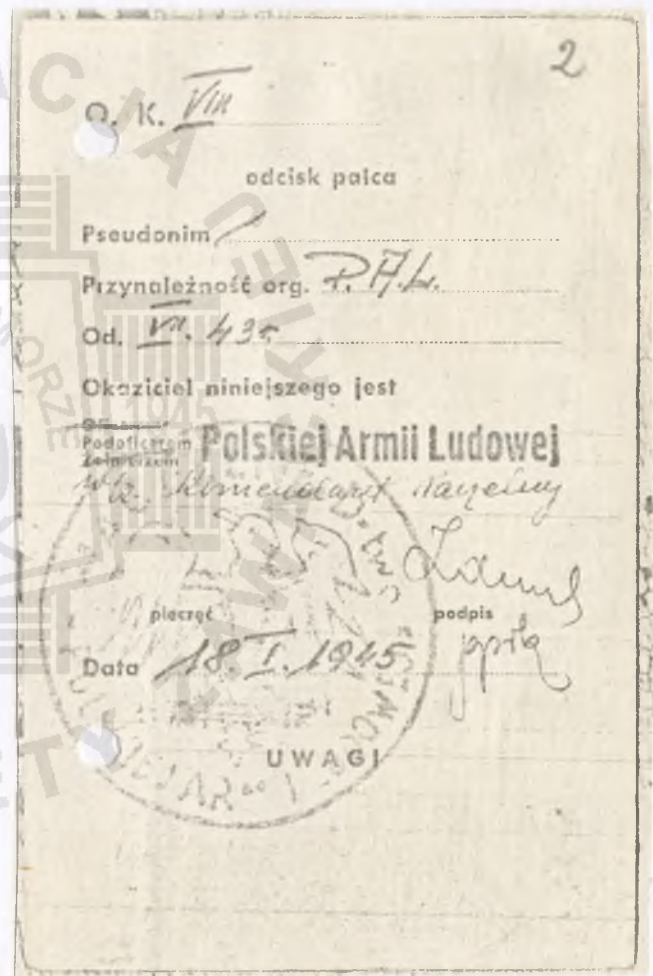 2
O. K. VIII
odcisk palca
Pseudonim /
Przynależność org. P.A.L.
Od. VII. 43 r.
Okaziciel niniejszego jest
Podoficerem
Żołnierzem
Polskiej Armii Ludowej
Komendant Naczelny
pieczęć podpis
ppłk
Data 18. I. 1945
UWAGI